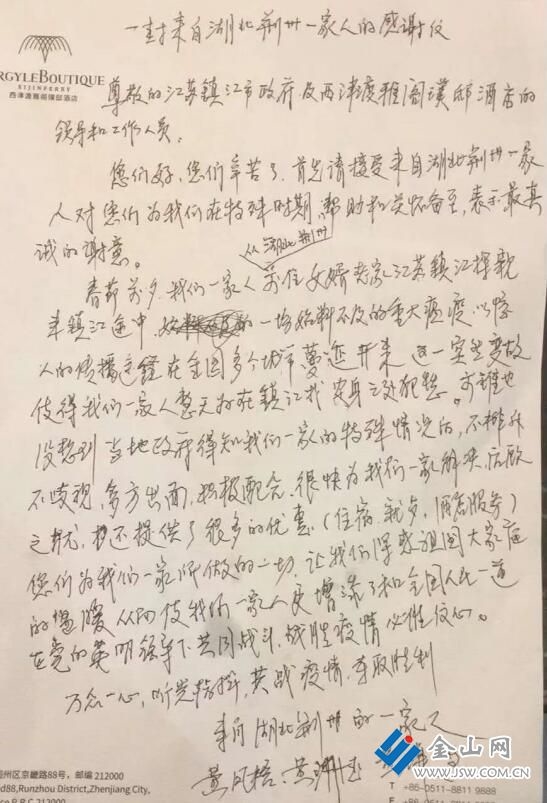 一封来自湖北荆州一家人的感谢信
ARGYLEBOUTIQUE
XIJINFERRY
西津渡雅阁璞邸酒店
尊敬的江苏镇江市政府及西津渡雅阁璞邸酒店的
领导和工作人员。
您们好,您们辛苦了,首先请接受来自湖北荆州一家
人对您们为我们在特殊时期,帮助和关怀备至,表示最真
诚的谢意。
从湖北荆州
春节前夕,我们一家人前往女婿老家江苏镇江探亲
来镇江途中 一场始料不及的重大瘟疫以惊
人的传播速度在全国多个城市蔓延开来 这一突然变故
使得我们一家人整天都在镇江找安身之处犯愁。可谁也
没想到 当地政府得知我们一家的特殊情况后,不排斥
不歧视,多方出面,积极配合,很快为我们一家解决后顾
之忧,还提供了很多的优惠(住宿、就餐、酒店服务)
您们为我们一家所做的一切 让我们深感祖国大家庭
的温暖 从而使我们一家人更增添了和全国人民一道
在党的英明领导下 共同战斗、战胜疫情必胜信心。
万众一心,听党指挥,共战疫情,夺取胜利
来自湖北荆州的一家人
黄
州区京畿路88号,邮编 212000
d88,Runzhou District,Zhenjiang City,
T +86-0511-8811 9888
F +86-0511-
金山网
WWW.JSW.COM.CN